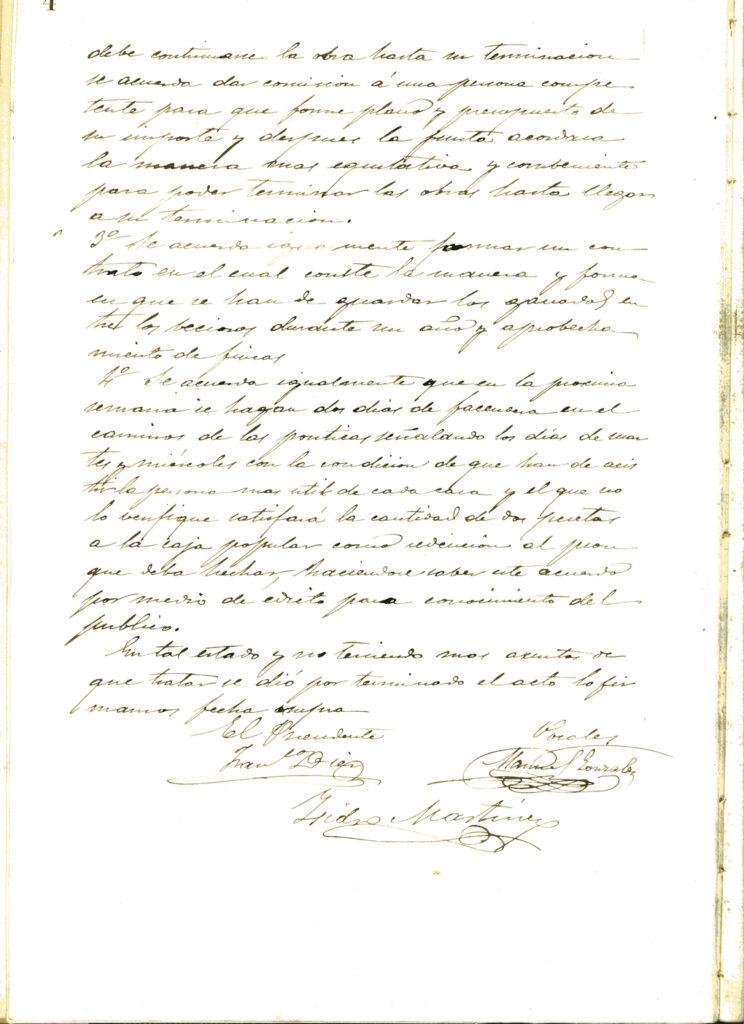 4
debe continuarse la obra hasta su terminacion
se acuerda dar comision á una persona compe
tente para que forme plano y presupuesto de
su importe y despues la Junta acordara
la manera mas equitativa y combeniente
para poder terminar las obras hasta llegar
a su terminacion.
3º Se acuerda igualmente formar un con
trato en el cual conste la manera y forma
en que se han de guardar los ganados en
tre los becinos durante un año y aprobecha
miento de fincas
4º Se acuerda igualmente que en la proxima
semana se hagan dos dias de facendera en el
caminos de las ponticas señalando los dias de mar
tes y miércoles con la condicion de que han de asis
tir la persona mas util de cada casa y el que no
lo verifique satisfará la cantidad de dos pesetas
a la caja popular como redencion al peon
que deba hechar, haciendose saber este acuerdo
por medio de edicto para conocimiento del
publico.
En tal estado y no teniendo mas asuntos de
que tratar se dió por terminado el acto lo fir
mamos fecha
El Presidente Vocales
Franco Diez Manuel Gonzalez
Isidro Martinez